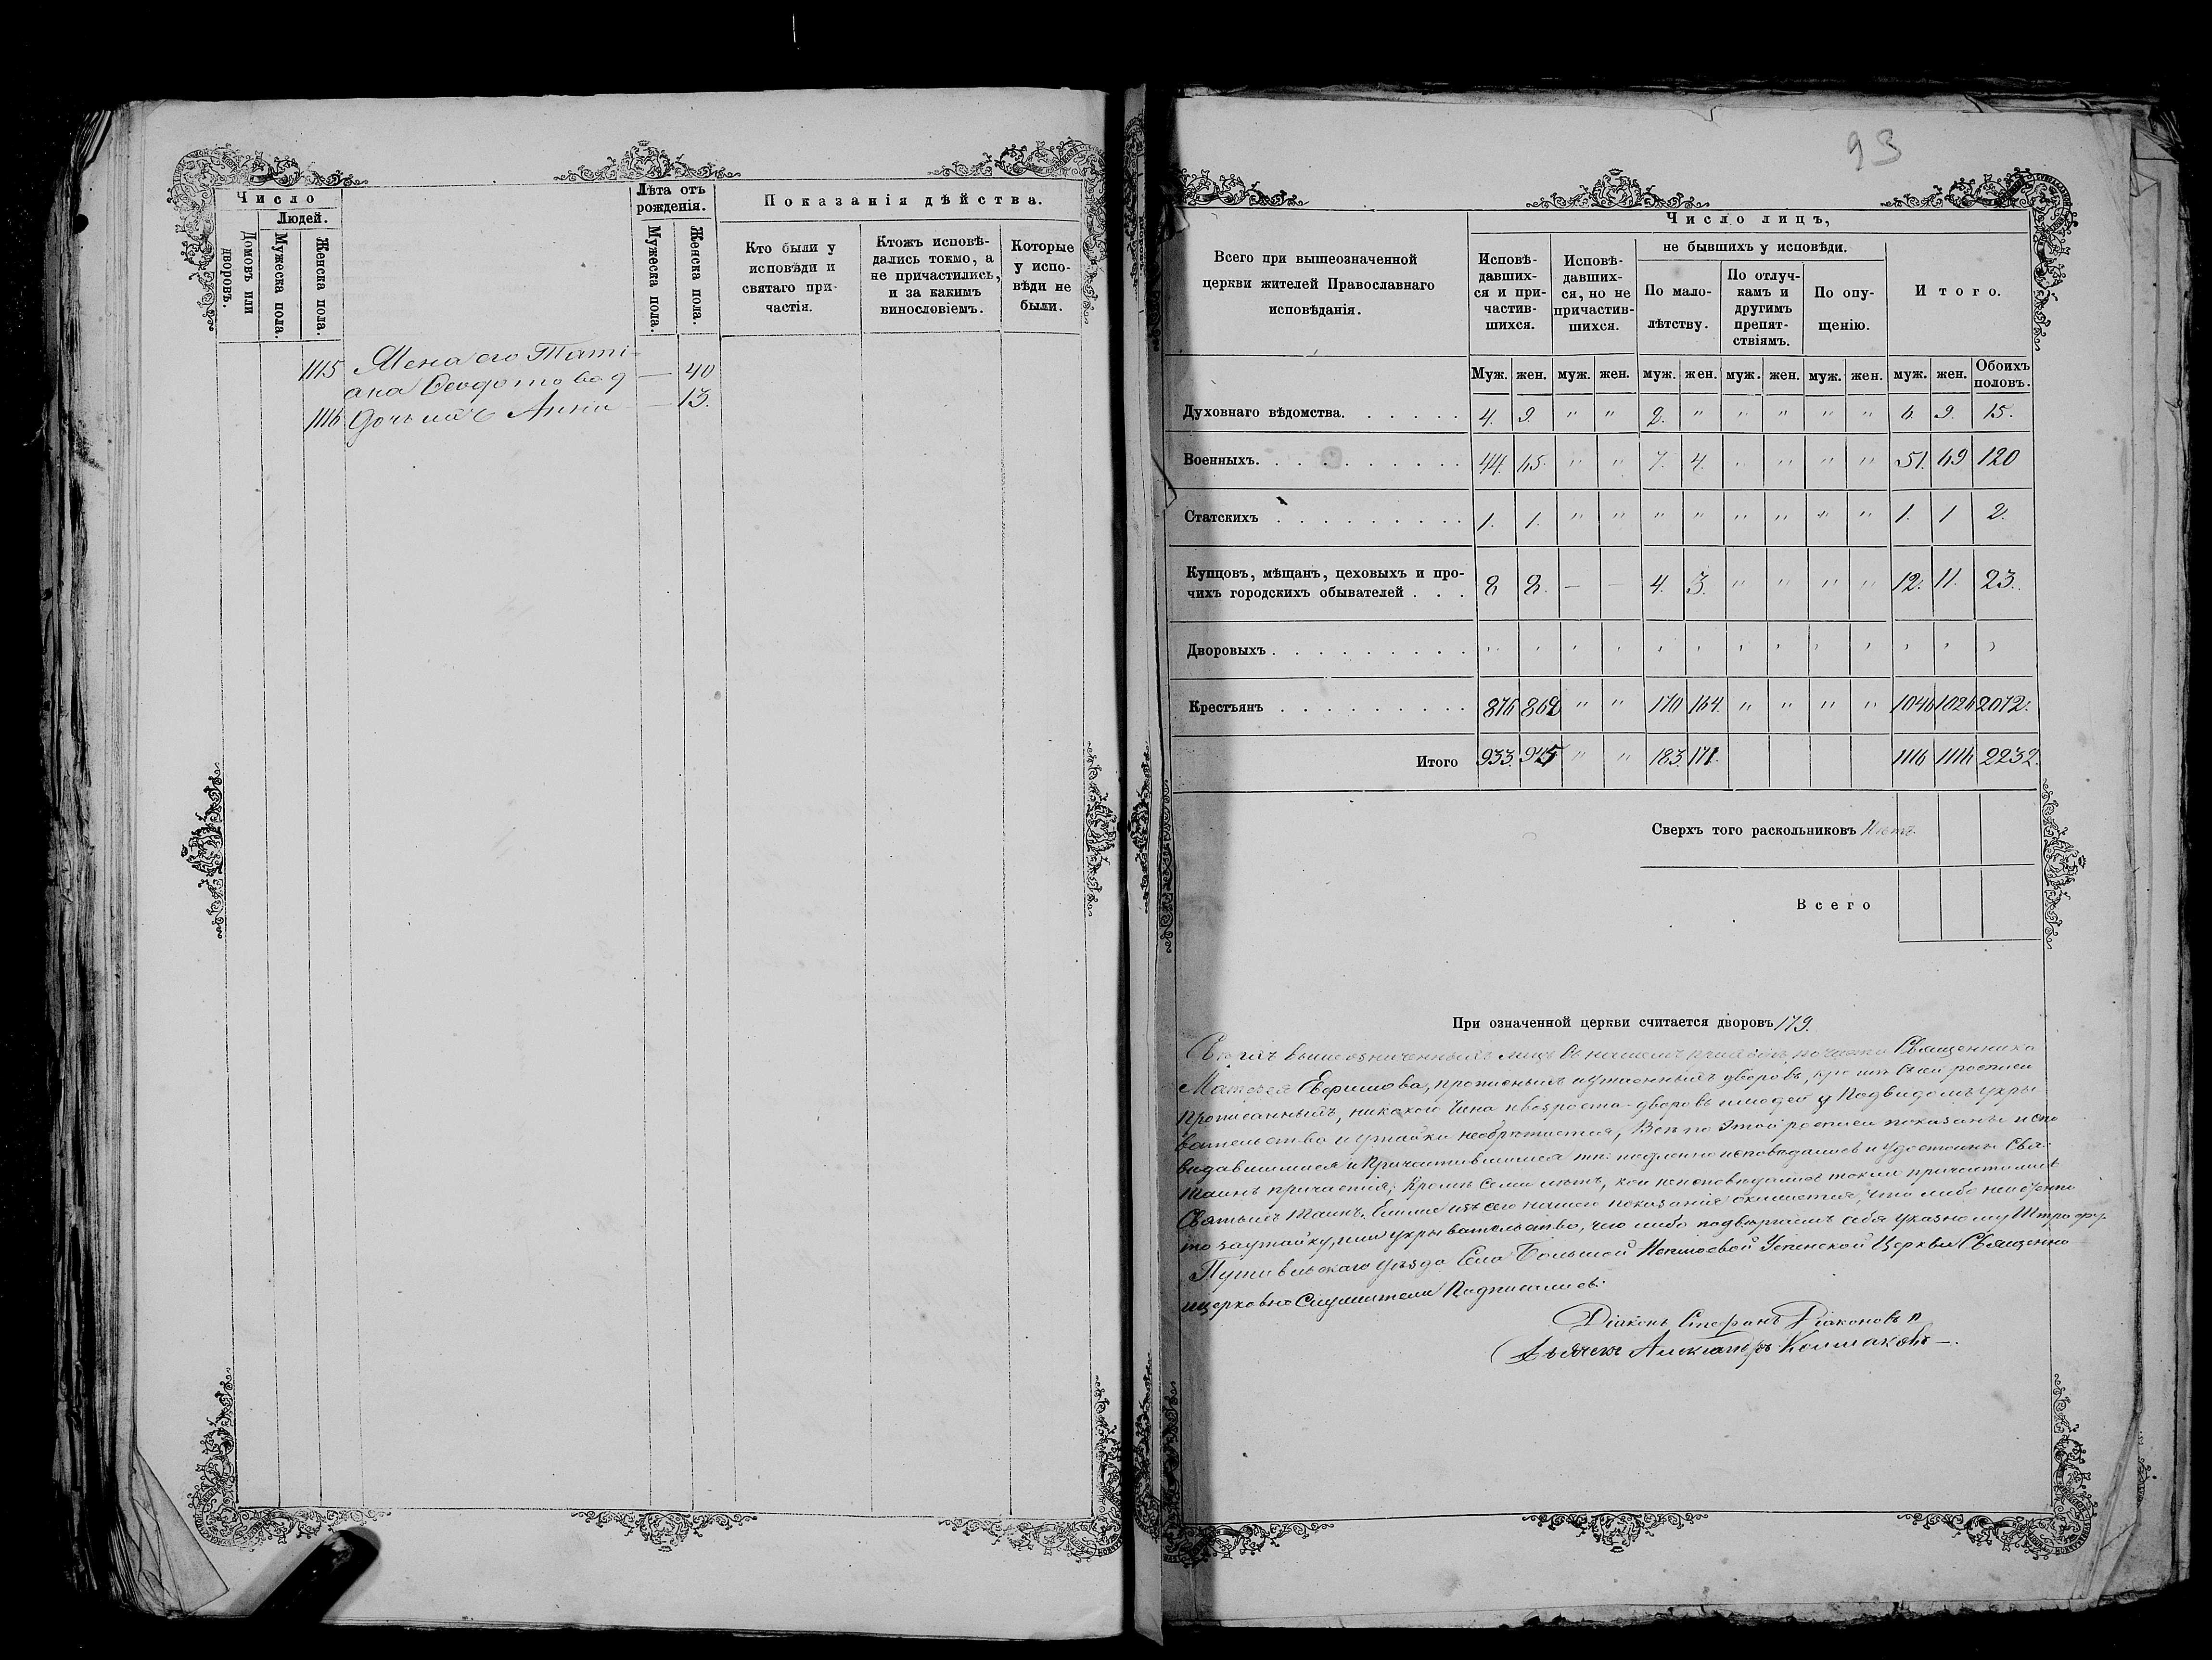 Число
Людей.
Домовъ или дворовъ.
Мужеска пола.
Женска пола.
Лѣта отъ рожденія.
Мужеска пола.
Женска пола.
Показанія дѣйства.
Кто были у исповѣди и святаго причастія.
Ктожъ исповѣдались токмо, а не причастились, и за какимъ винословіемъ.
Которые у исповѣди не были.
1115 Жена его Тати-
ана Ѳеодотова — 40
1116 Дочь ихъ Анна — 13.
93
Всего при вышеозначенной
церкви жителей Православнаго
исповѣданія.
Число лицъ,
Исповѣдавшихся и причастившихся.
Исповѣдавшихся, но не причастившихся.
не бывшихъ у исповѣди.
По малолѣтству.
По отлучкамъ и другимъ препятствіямъ.
По опущенію.
Итого.
Муж. жен. муж. жен. муж. жен. муж. жен. муж. жен. муж. жен. Обоихъ половъ.
Духовнаго вѣдомства. 4. 9. " " 2. " " " " " 6. 9. 15.
Военныхъ. 44. 65. " " 7. 4. " " " " 51. 69 120
Статскихъ 1. 1. " " " " " " " " 1. 1 2.
Купцовъ, мѣщанъ, цеховыхъ и про-
чихъ городскихъ обывателей 8 8. — — 4. 3. " " " " 12. 11. 23.
Дворовыхъ
Крестьянъ 876 862 " " 170 164. " " " " 1046 1026 2072.
Итого 933. 945 " " 183. 171. 1116 1116 2232.
Сверхъ того раскольниковъ Нѣтъ.
Всего
При означенной церкви считается дворовъ 179.
вышеозначенныхъ лицъ въ нашемъ Священника
Матвея Ефимова, дворовъ, росписи
Прописанныхъ, никакого чина дворовъ и людей
и утайки Всѣ по этой росписи показаны испо
видавшимися и Причастившимися и Удостоены Свя.
Таинъ причастія; Кромѣ Семи лѣтъ, кои неисповѣдались токмо причастились
Святыхъ Таинъ. изъ сего нашего показанія что либо
то за утайку, или укрывательство, чего либо подвергаемъ себя Указному Штрафу
Путивльскаго Уѣзда Села Большой Неплюевой Успенской Церкви Священно
и церковно Служители Подписались:
Діаконъ Стефанъ Діаконовъ
Дьячекъ Александръ Колмаковъ —.